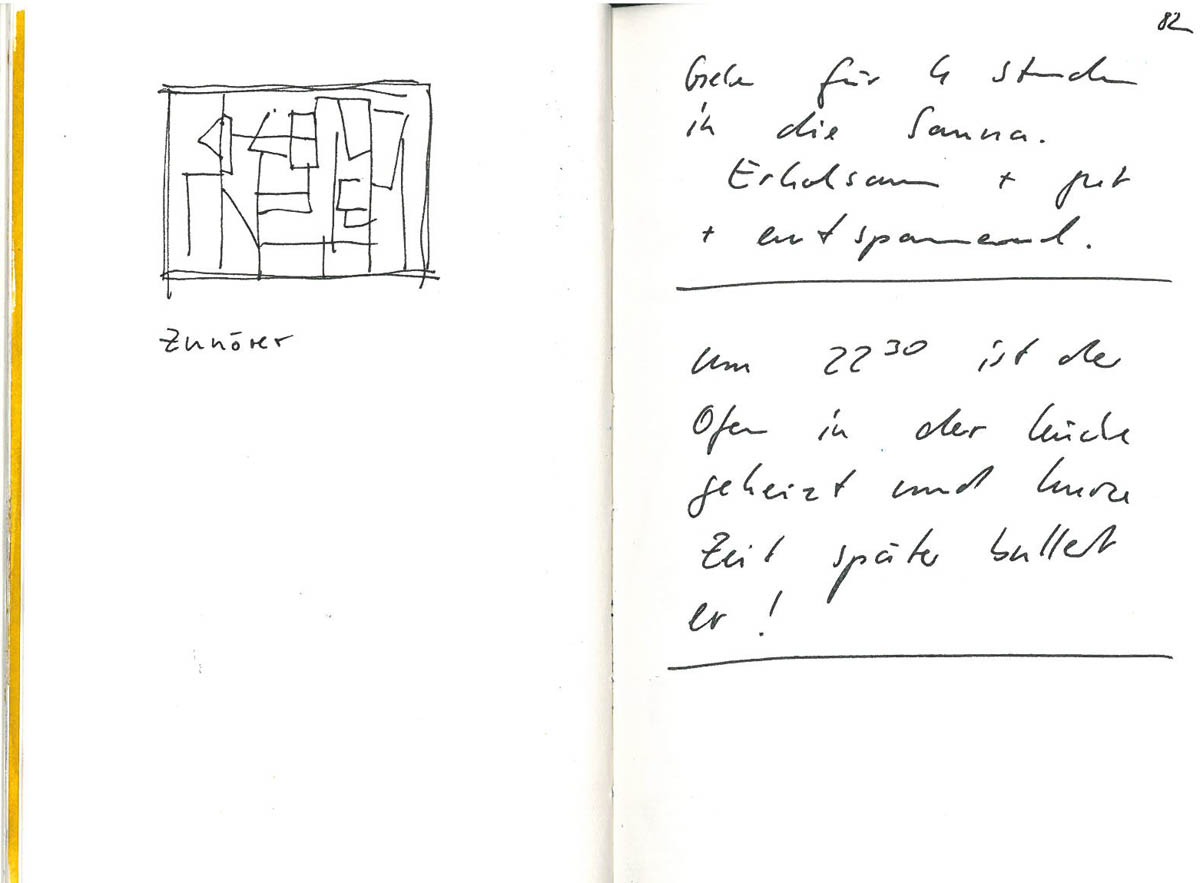 Zuhörer
82
Gehe für 4 Stunden
in die Sauna.
Erholsam + gut
+ entspannend.
um 22³⁰ ist der
Ofen in der Küche
geheizt und kurze
Zeit später bullert
er!